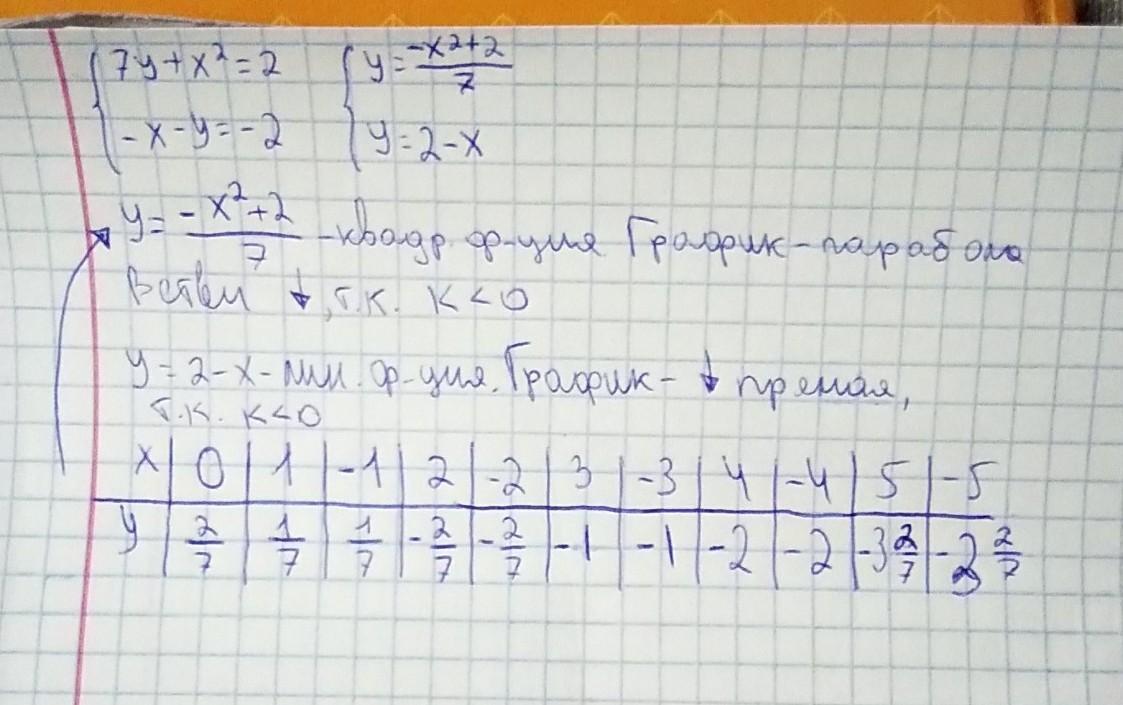 7y+x²=2 y=-x²+2/7
-x-y=-2 y=2-x
y=-x²+2/7 -квадр. ф-ция График-парабола
Ветви ↓, т.к. K<0
y=2-x-лин. ф-ция. График-↓ прямая,
т.к. K<0
x 0 1 -1 2 -2 3 -3 4 -4 5 -5
y 2/7 1/7 1/7 -2/7 -2/7 -1 -1 -2 -2 -3 2/7 -3 2/7